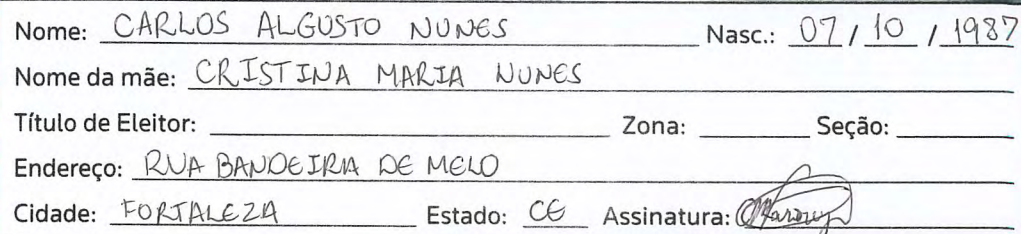 Nome: CARLOS ALGUSTO NUNES Nasc.: 07 / 10 / 1987
Nome da mãe: CRISTINA MARIA NUNES
Título de Eleitor: Zona: Seção:
Endereço: RUA BANDEIRIA DE MELO
Cidade: FORTALEZA Estado: CE Assinatura: